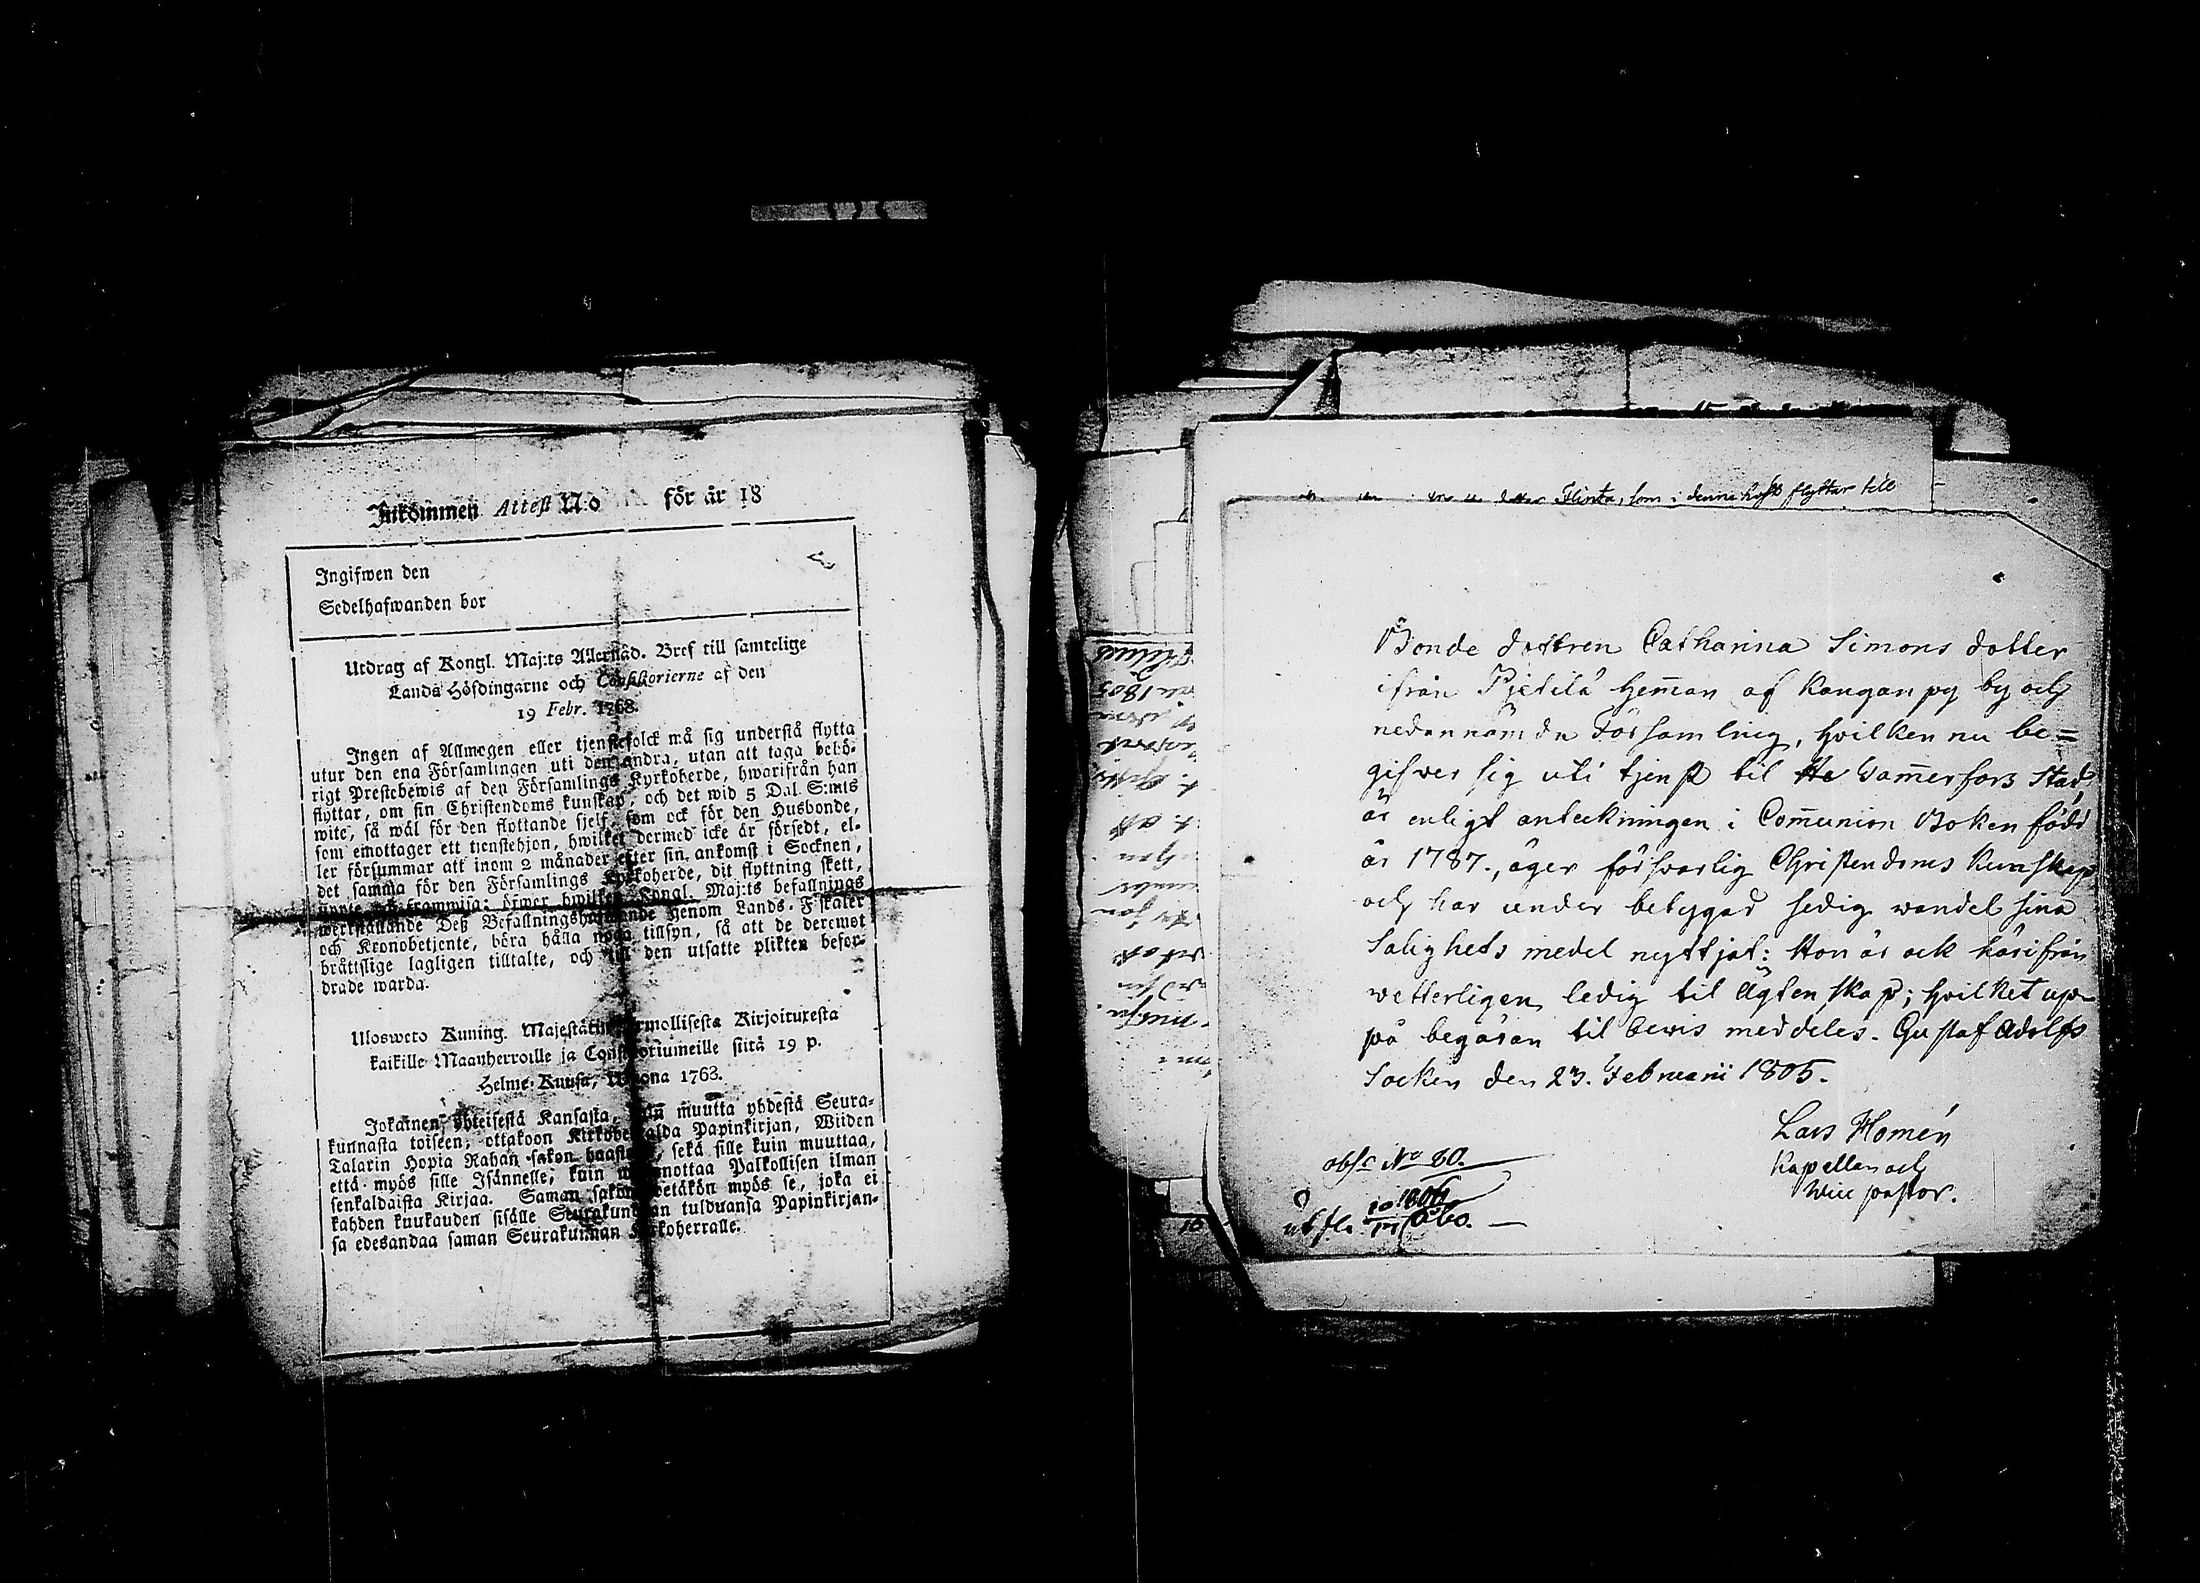 Inkommen Attest N:o för år 18
Ingifwen den
Sedelhafwanden bor
Utdrag af Kongl. Maj:ts Allernåd. Bref till samtelige
Lands Höfdingarne och Consistorierne af den
19 Febr. 1768.
Ingen af Allmogen eller tjenstefolck må sig understå flytta
utur den ena Församlingen uti den andra, utan att taga behö-
rigt Prestebewis af den Församlings Kyrkoherde, hwarifrån han
flyttar, om sin Christendoms kunskap, och det wid 5 Dal. S:mts
wite, så wäl för den flyttande sjelf, som ock för den Husbonde,
som emottager ett tienstehjon, hwilket dermed icke är försedt, el-
ler försummar att inom 2 månader efter sin ankomst i Socknen,
det samma för den Församlings Kyrkoherde, dit flyttning skett,
framwisa; öfwer hwilket Kongl. Maj:ts befallnings
werkställande Deß Befallningshafwande genom Lands-Fiskaler
och Kronobetjente, böra hålla noga tillsyn, så att de deremot
bråttslige lagligen tilltalte, och till den utsatte plikten befor-
drade warda.
Ulosweto Kuning. Majestätin Armollisesta Kirjoituresta
kaikille Maanherroille ja Consistoriumeille siitä 19 p.
Helme-Kuusa, Wuona 1763.
Jokainen yhteisestä Kansasta, kuin muutta yhdestä Seura-
kunnasta toiseen, ottakoon Kirkoherralda Papinkirjan, Wiiden
Talarin Hopia Rahan sakon haastolla, sekä sille kuin muuttaa,
että myös sille Isännelle, kuin wastanottaa Palkollisen ilman
senkaldaista Kirjaa. Saman sakon wetäkön myös se, joka ei
kahden kuukauden sisälle Seurakundaan tulduansa Papinkirjan-
sa edesandaa saman Seurakunnan Kirkoherralle.
Flinta, som i denne höst flyttar till
Bonde dottren Catharina Simons dotter
ifrån Pjetilä hem̄an af Kangan py by och
nedannämde Församling, hvilken nu be=
gifver sig uti tjenst til Ta Wam̄erfors Stad
är enligt anteckningen i Com̄union Boken född
år 1787., äger försvarlig Christendoms Kunskap
och har under betygad sedig wandel sina
Salighets medel nyttjat: Hon är ock härifrån
wetterligen ledig til Ägtenskap; hvilket up-
på begäran til bewis meddeles. Gustaf Adolfs
Socken den 23. Februarii 1805.
Lars Homén
Kapellan och
Vice pastor.
obs:r No 20.
utfl. 1806 Åbo.